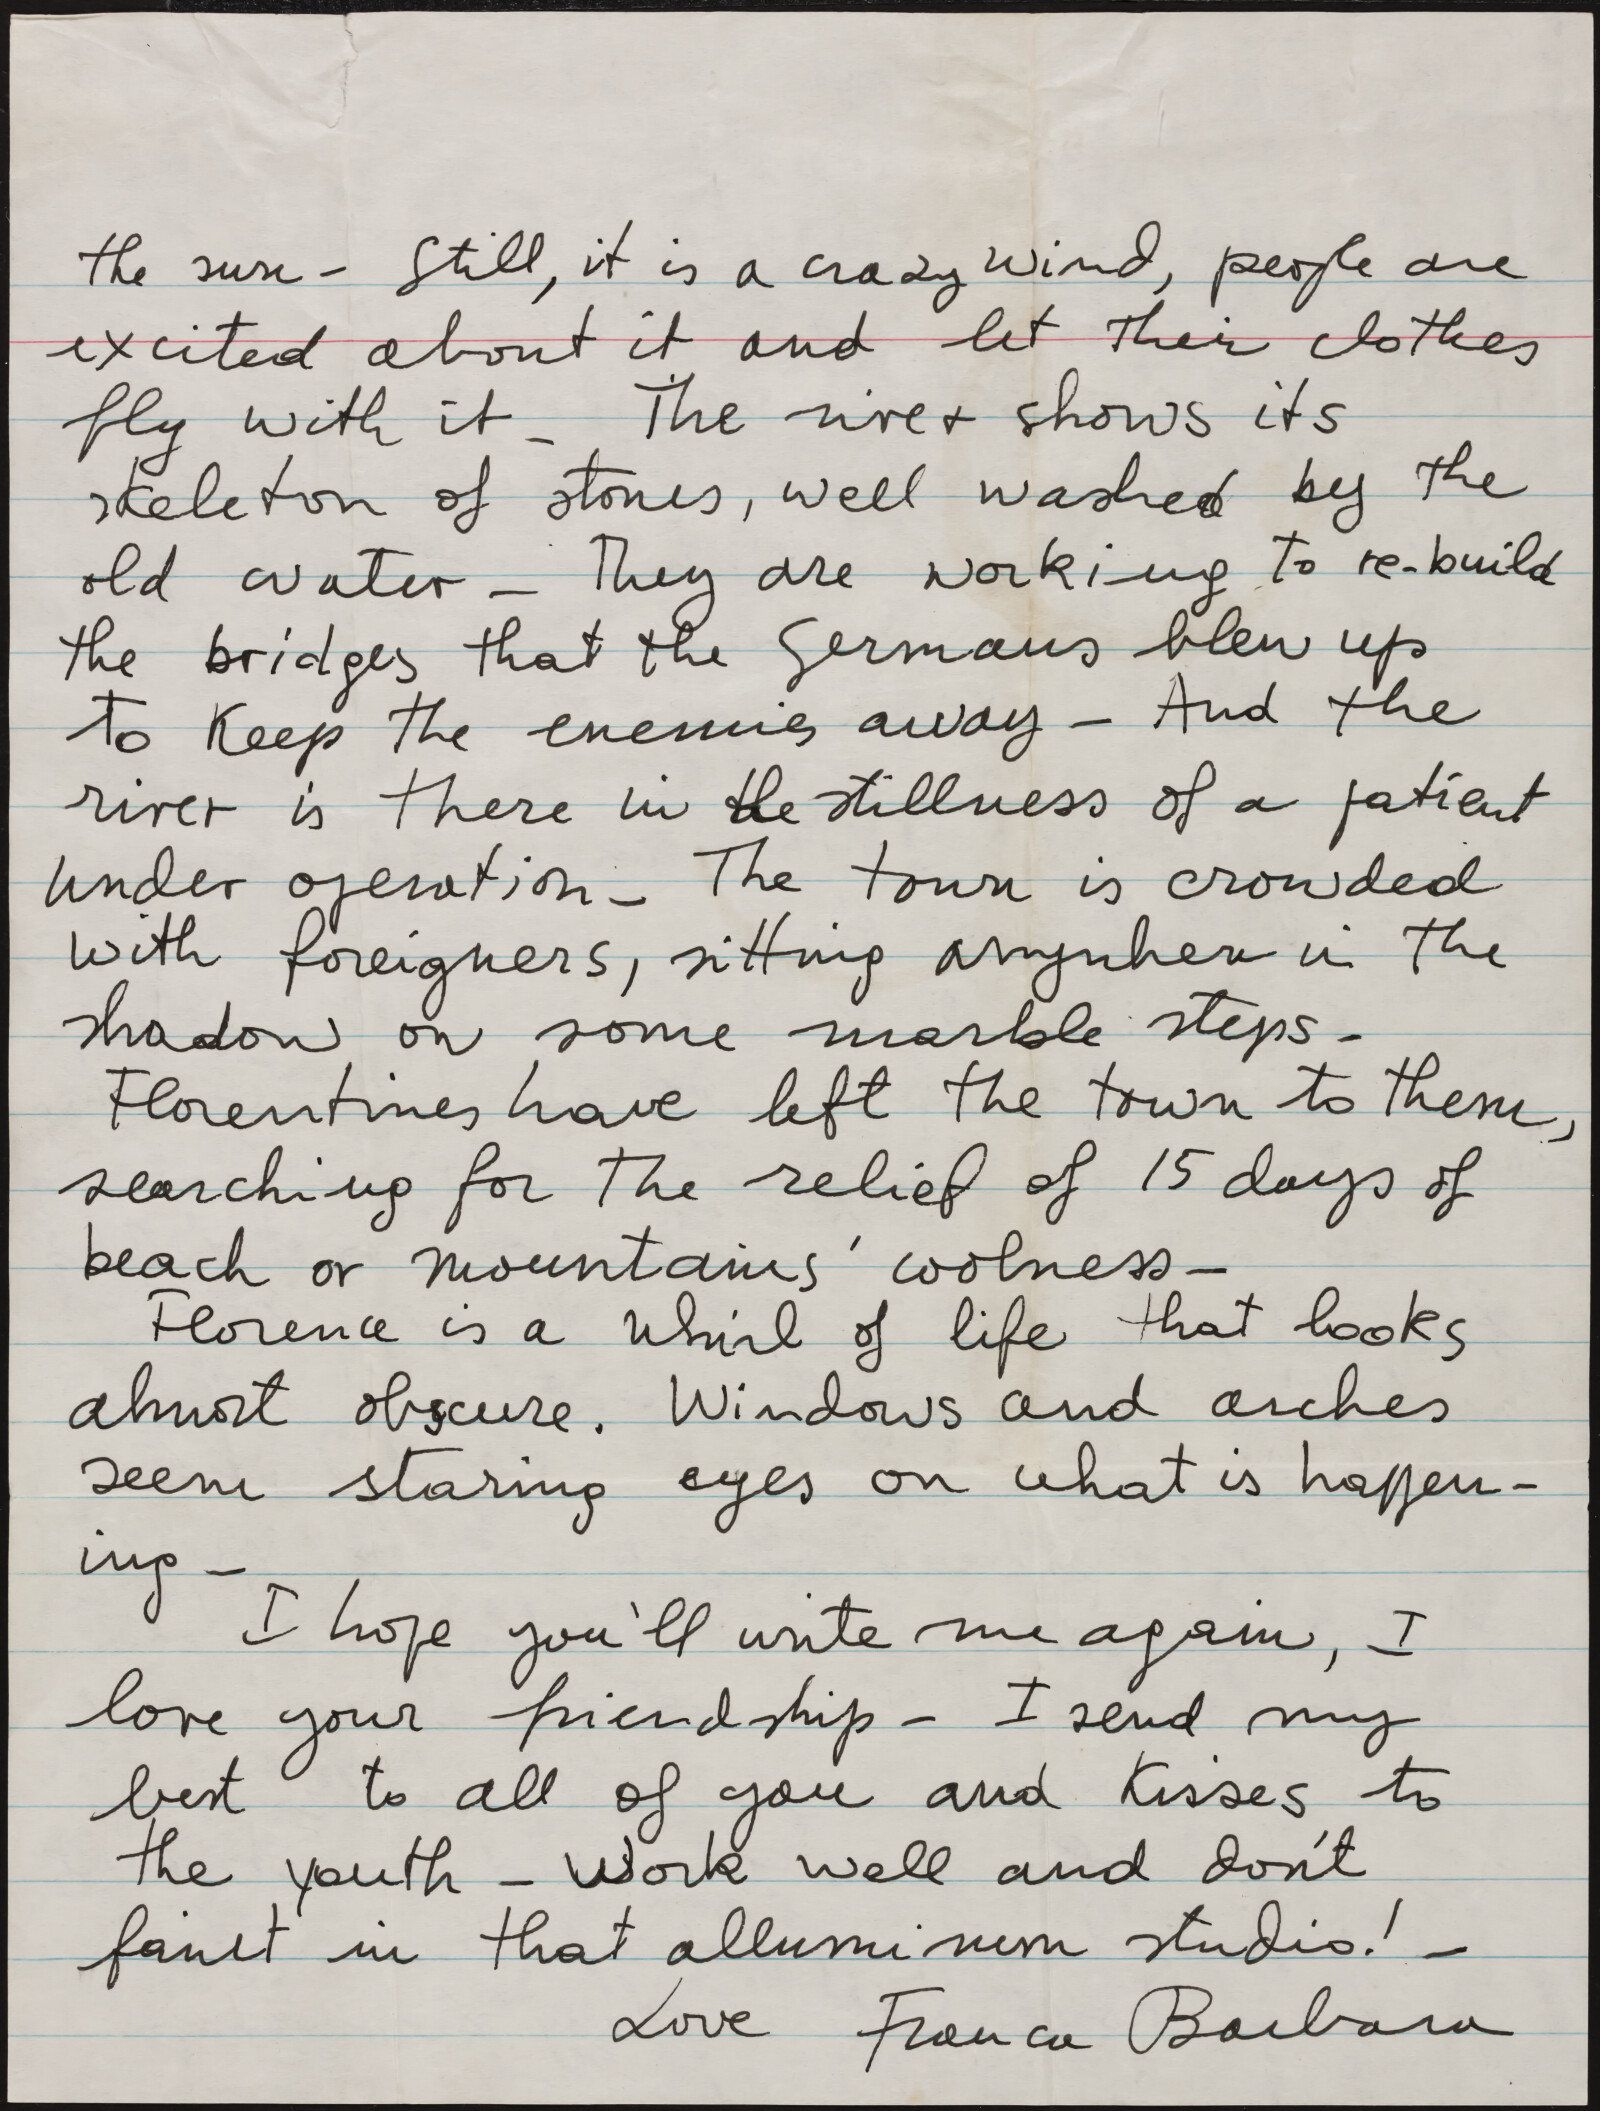 the sun - Still, it is a crazy wind, people are
excited about it and let their clothes
fly with it - The river shows its
skeleton of stones, well washed by the
old water - They are working to re-build
the bridges that the Germans blew up
to Keep the enemies away - And the
river is there in the stillness of a patient
under operation - The town is crowded
with foreigners, sitting anywhere in the
shadow on some marble steps -
Florentines have left the town to them,
searching for the relief of 15 days of
beach or mountains' coolness -
Florence is a whirl of life that looks
almost obscure. Windows and arches
seem staring eyes on what is happen-
ing -
I hope you'll write me again, I
love your friendship - I send my
best to all of you and Kisses to
the youth - Work well and don't
faint in that alluminum studio! -
Love Franca Barbara